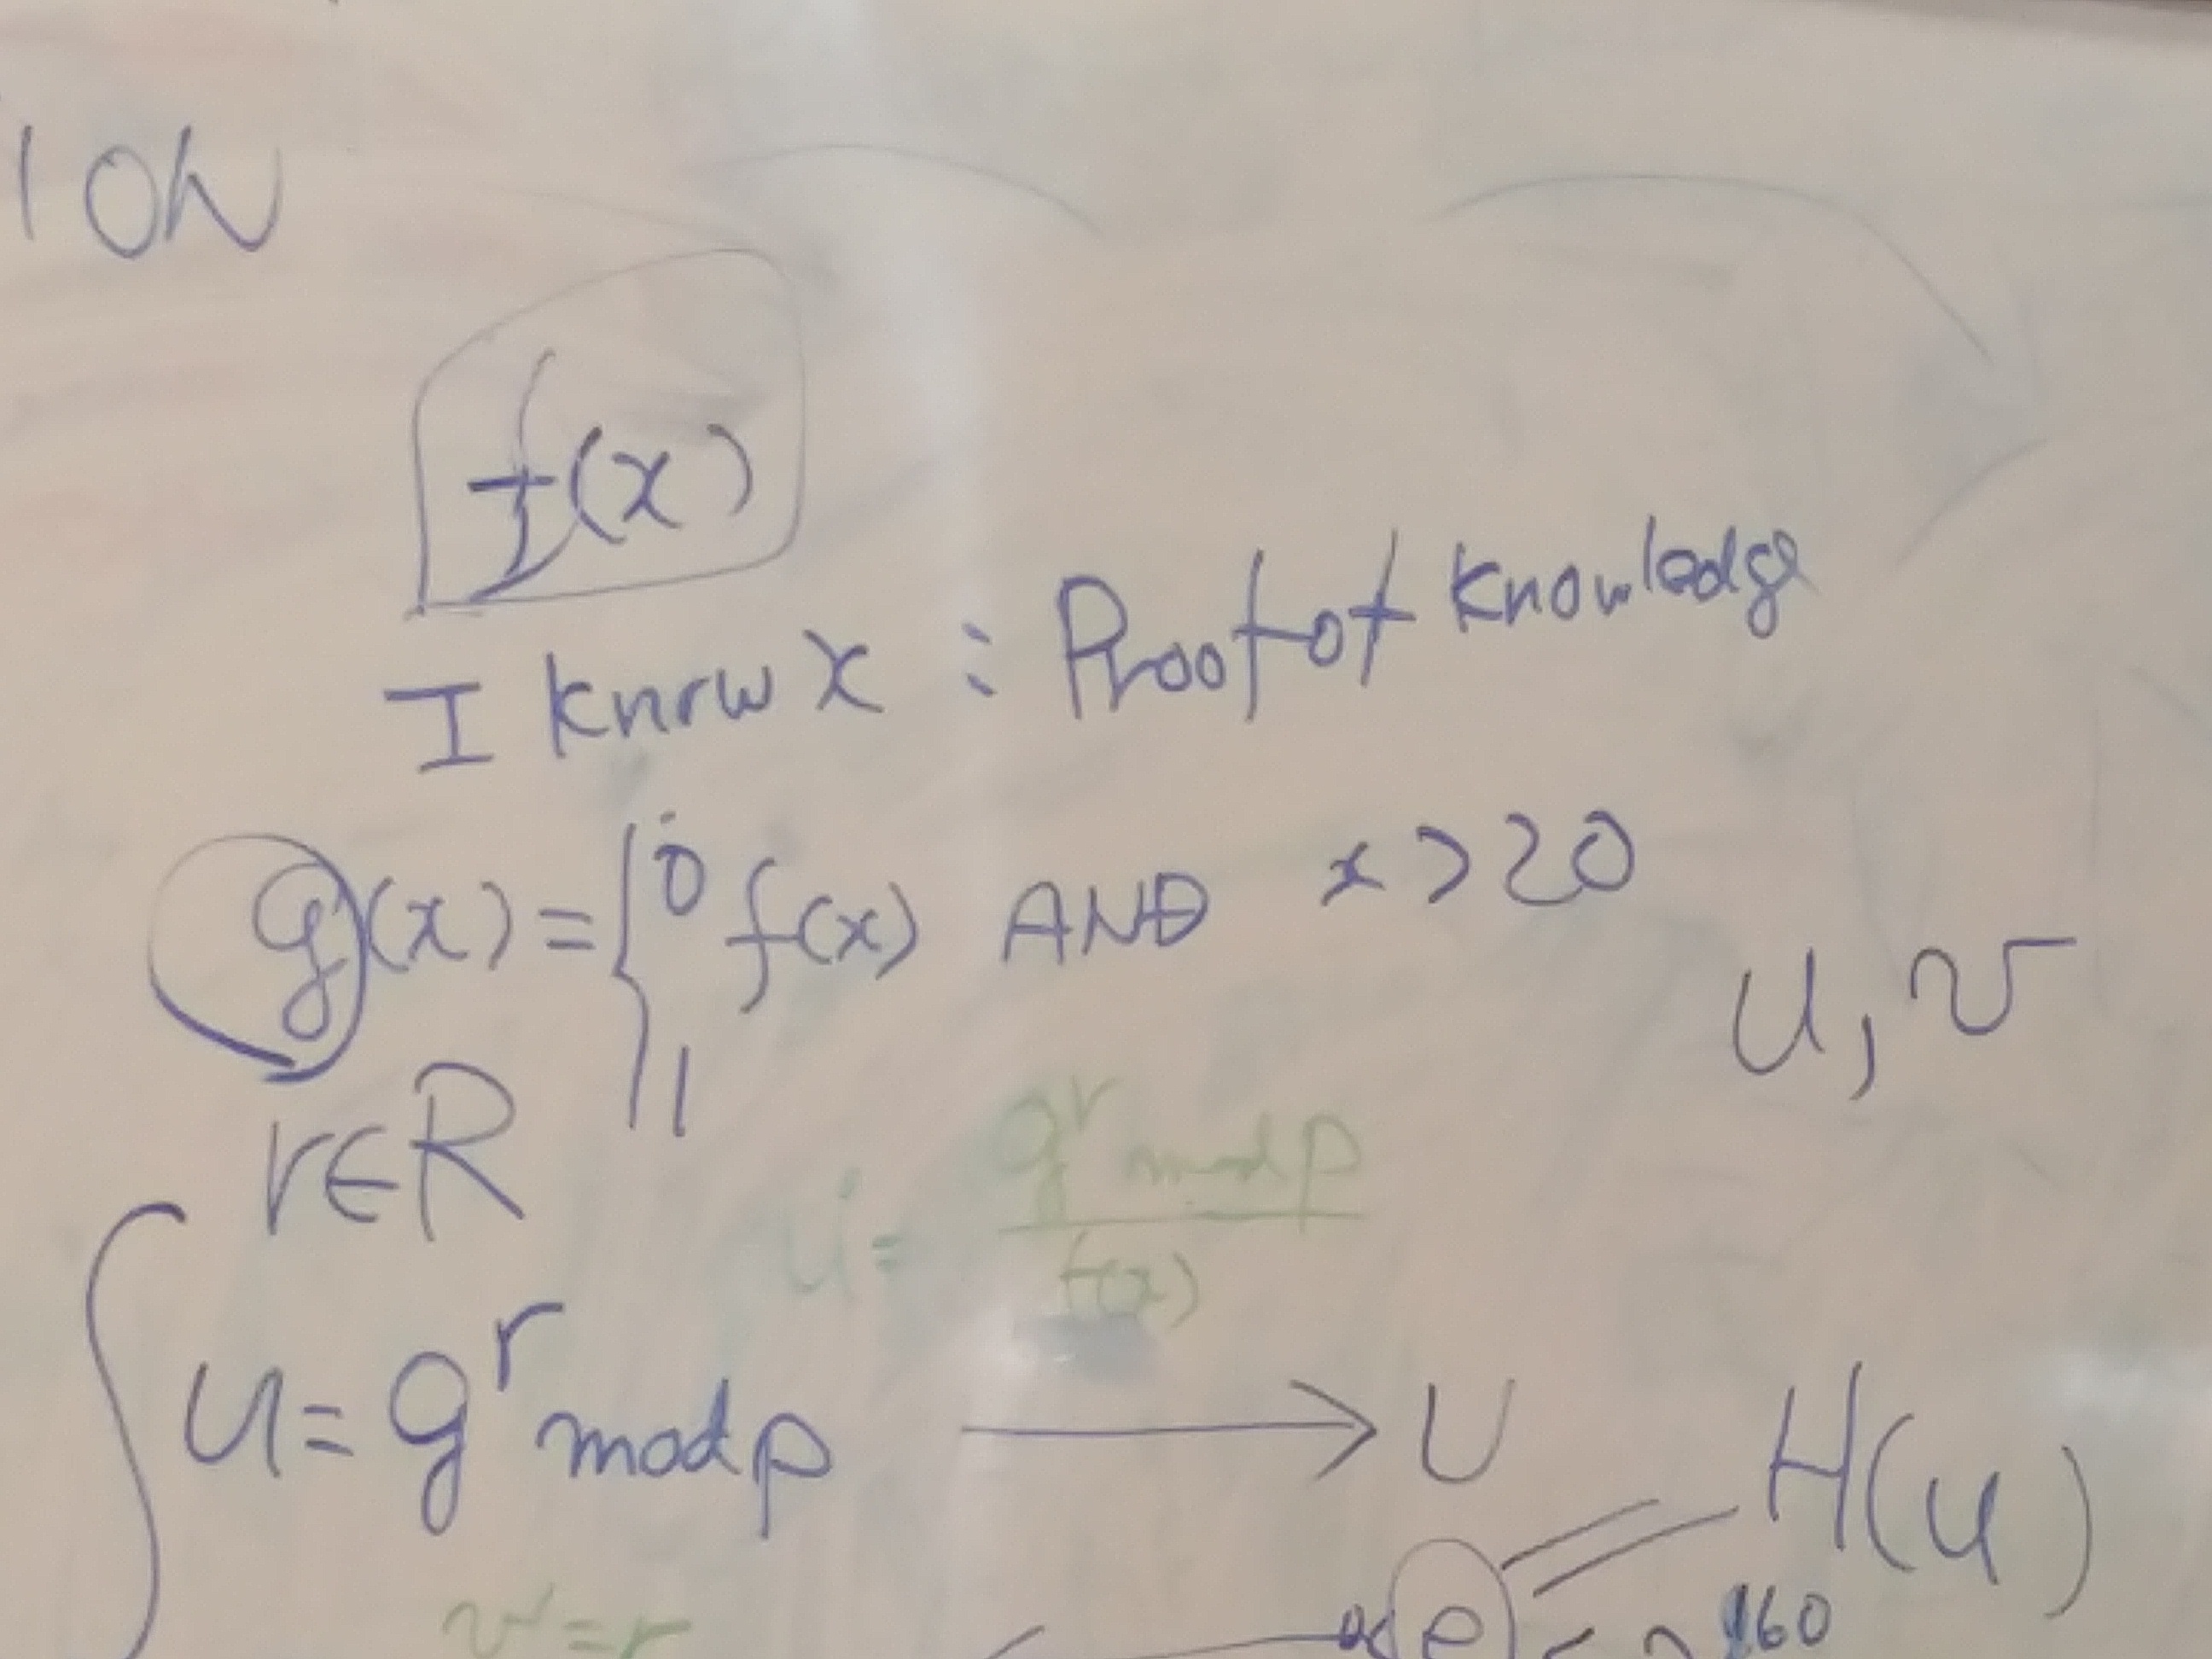 ION
f(x)
I know x : Proof of knowledge
g(x) = { 0 f(x) AND x > 20
1
u, v
r ∈ R
u = g^r mod p / f(x)
u = g^r mod p → U
H(u)
v = r
e
160